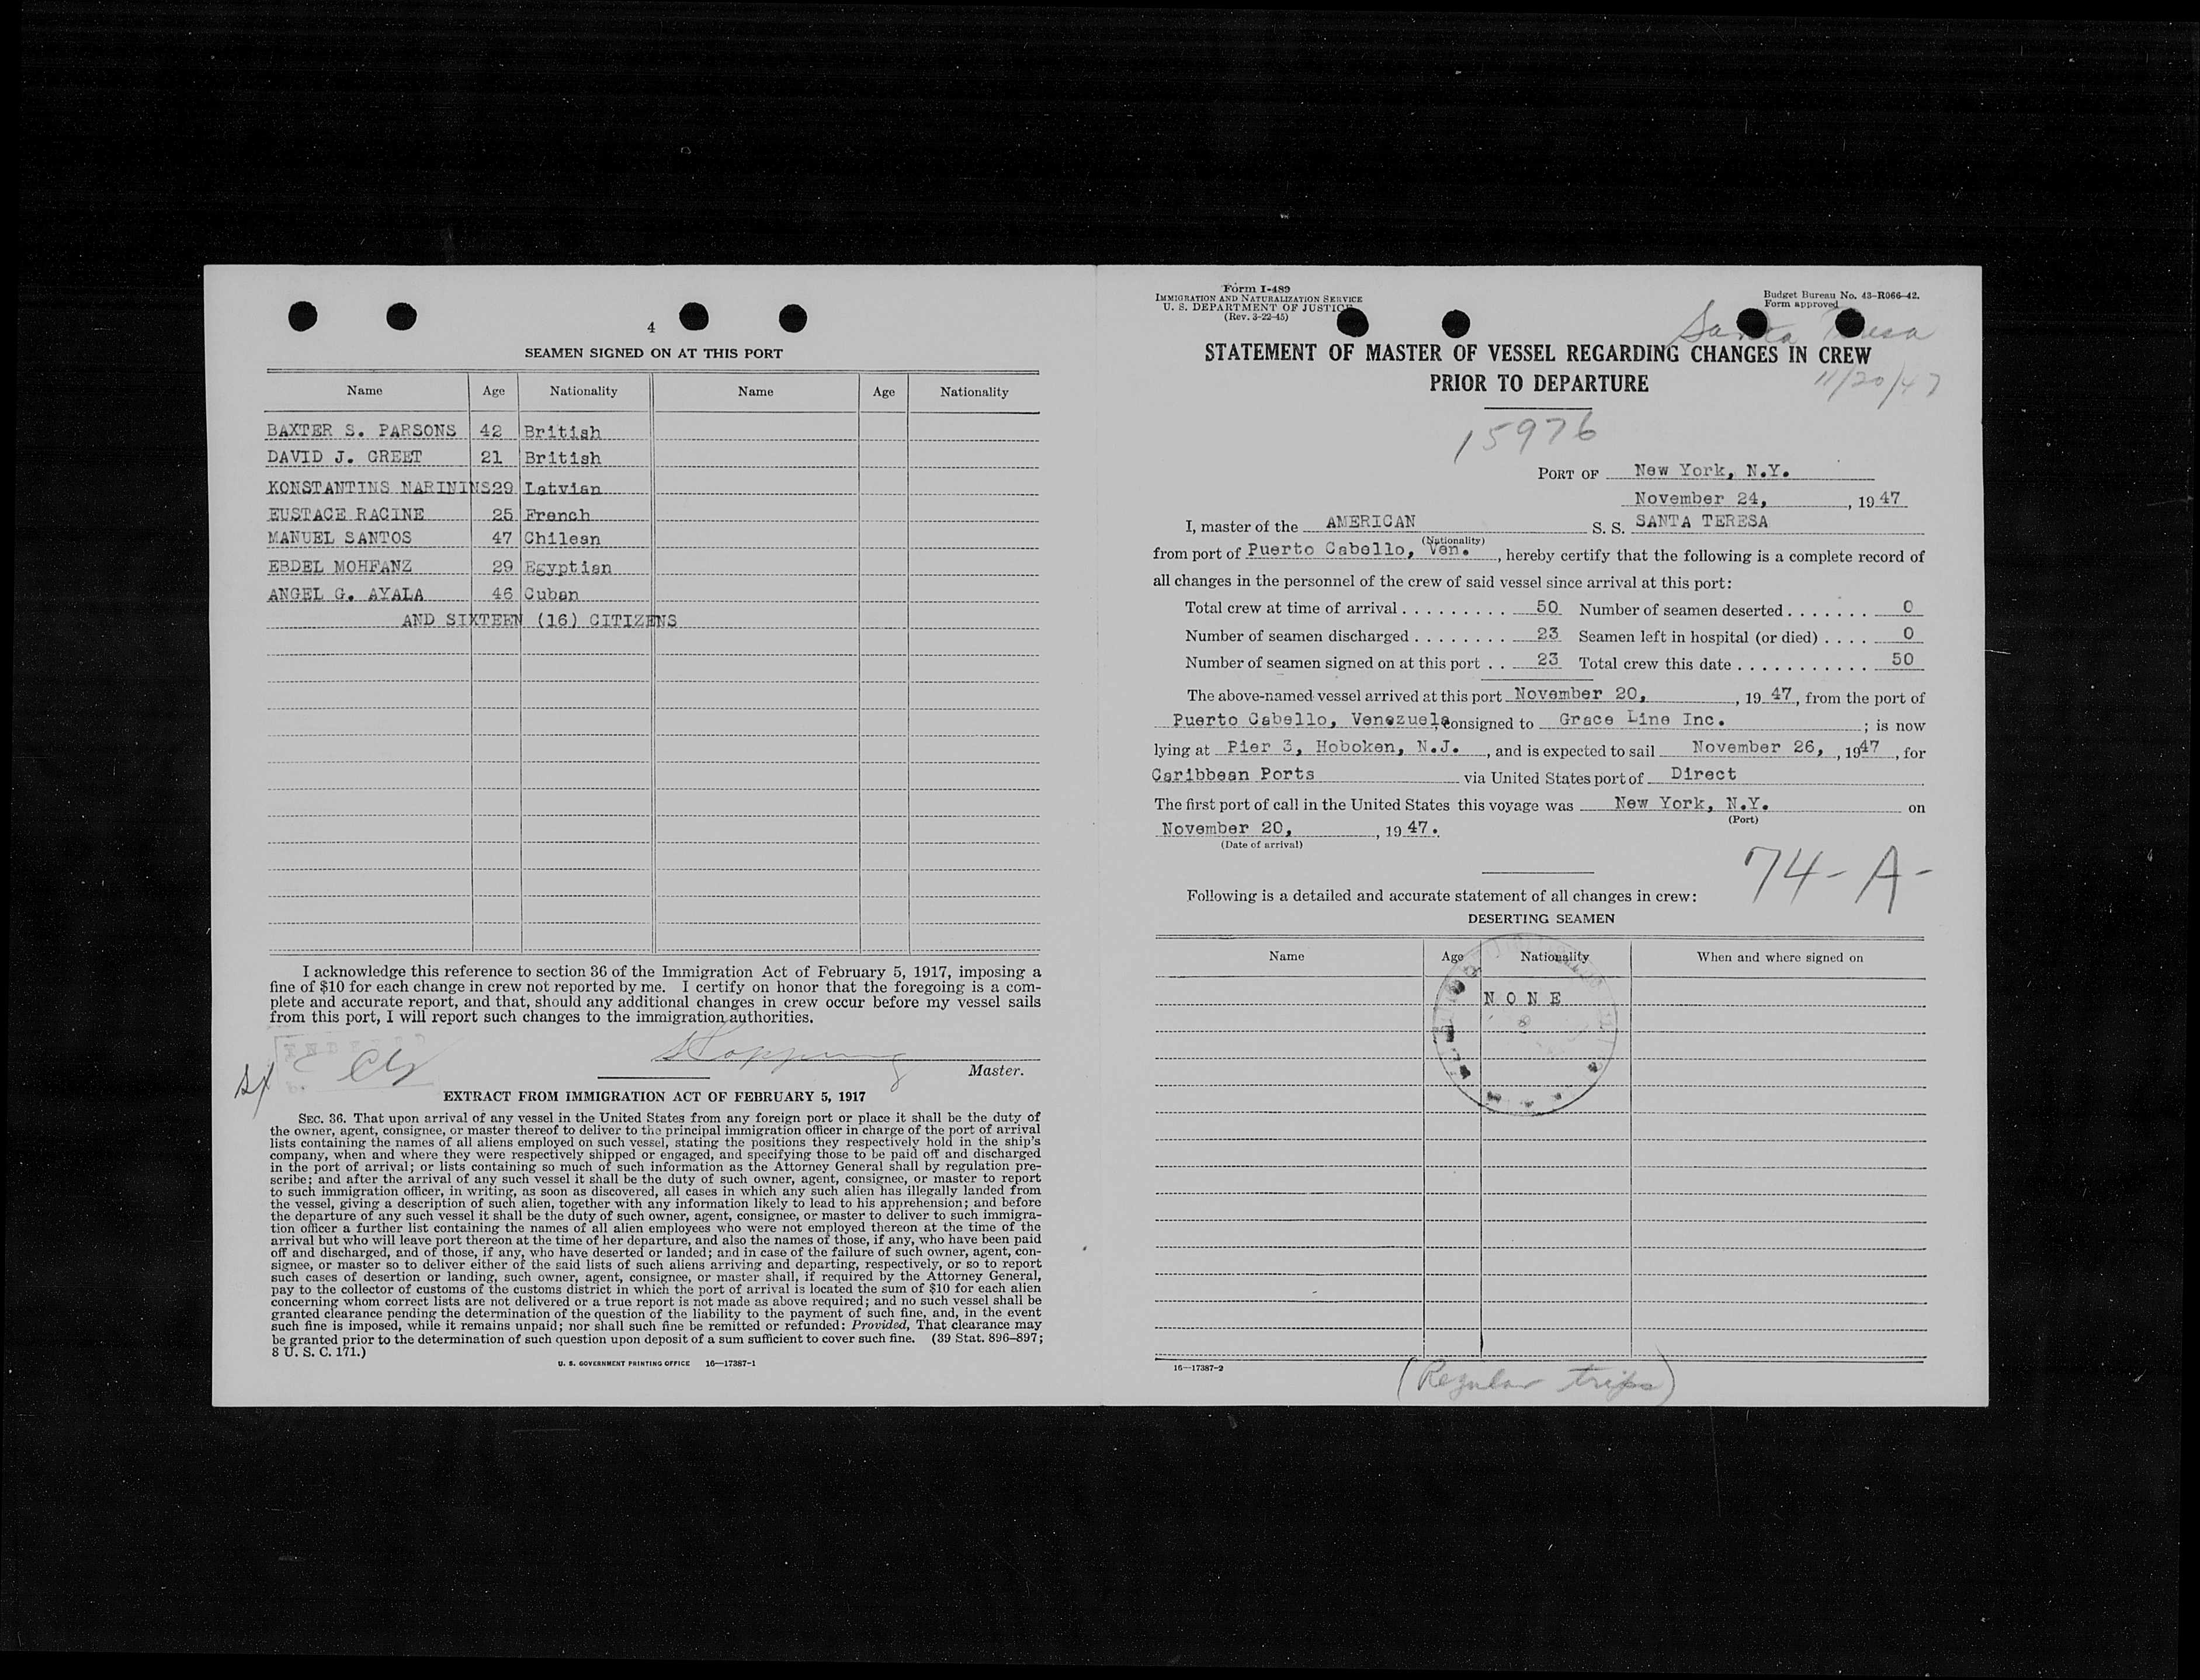 4
SEAMEN SIGNED ON AT THIS PORT
Name Age Nationality Name Age Nationality
BAXTER S. PARSONS 42 British
DAVID J. GREET 21 British
KONSTANTINS NARININS 29 Latvian
EUSTACE RACINE 25 French
MANUEL SANTOS 47 Chilean
EBDEL MOHFANZ 29 Egyptian
ANGEL G. AYALA 46 Cuban
AND SIXTEEN (16) CITIZENS
I acknowledge this reference to section 36 of the Immigration Act of February 5, 1917, imposing a
fine of $10 for each change in crew not reported by me. I certify on honor that the foregoing is a com-
plete and accurate report, and that, should any additional changes in crew occur before my vessel sails
from this port, I will report such changes to the immigration authorities.
Master.
EXTRACT FROM IMMIGRATION ACT OF FEBRUARY 5, 1917
SEC. 36. That upon arrival of any vessel in the United States from any foreign port or place it shall be the duty of
the owner, agent, consignee, or master thereof to deliver to the principal immigration officer in charge of the port of arrival
lists containing the names of all aliens employed on such vessel, stating the positions they respectively hold in the ship's
company, when and where they were respectively shipped or engaged, and specifying those to be paid off and discharged
in the port of arrival; or lists containing so much of such information as the Attorney General shall by regulation pre-
scribe; and after the arrival of any such vessel it shall be the duty of such owner, agent, consignee, or master to report
to such immigration officer, in writing, as soon as discovered, all cases in which any such alien has illegally landed from
the vessel, giving a description of such alien, together with any information likely to lead to his apprehension; and before
the departure of any such vessel it shall be the duty of such owner, agent, consignee, or master to deliver to such immigra-
tion officer a further list containing the names of all alien employees who were not employed thereon at the time of the
arrival but who will leave port thereon at the time of her departure, and also the names of those, if any, who have been paid
off and discharged, and of those, if any, who have deserted or landed; and in case of the failure of such owner, agent, con-
signee, or master so to deliver either of the said lists of such aliens arriving and departing, respectively, or so to report
such cases of desertion or landing, such owner, agent, consignee, or master shall, if required by the Attorney General,
pay to the collector of customs of the customs district in which the port of arrival is located the sum of $10 for each alien
concerning whom correct lists are not delivered or a true report is not made as above required; and no such vessel shall be
granted clearance pending the determination of the question of the liability to the payment of such fine, and, in the event
such fine is imposed, while it remains unpaid; nor shall such fine be remitted or refunded: Provided, That clearance may
be granted prior to the determination of such question upon deposit of a sum sufficient to cover such fine. (39 Stat. 896–897;
8 U. S. C. 171.)
U. S. GOVERNMENT PRINTING OFFICE 16—17387-1
Form I-489
IMMIGRATION AND NATURALIZATION SERVICE
U. S. DEPARTMENT OF JUSTICE
(Rev. 3-22-45)
Budget Bureau No. 43-R066-42.
Form approved
Santa Teresa
11/20/47
STATEMENT OF MASTER OF VESSEL REGARDING CHANGES IN CREW
PRIOR TO DEPARTURE
15976
PORT OF New York, N.Y.
November 24, , 19 47
I, master of the AMERICAN S. S. SANTA TERESA
(Nationality)
from port of Puerto Cabello, Ven. , hereby certify that the following is a complete record of
all changes in the personnel of the crew of said vessel since arrival at this port:
Total crew at time of arrival . . . . . . . . . 50 Number of seamen deserted . . . . . . . 0
Number of seamen discharged . . . . . . . . 23 Seamen left in hospital (or died) . . . . 0
Number of seamen signed on at this port . . 23 Total crew this date . . . . . . . . . . . 50
The above-named vessel arrived at this port November 20, , 19 47, from the port of
Puerto Cabello, Venezuela consigned to Grace Line Inc. ; is now
lying at Pier 3, Hoboken, N.J. , and is expected to sail November 26, , 1947 , for
Caribbean Ports via United States port of Direct
The first port of call in the United States this voyage was New York, N.Y. on
(Port)
November 20, , 19 47.
(Date of arrival)
74-A-
Following is a detailed and accurate statement of all changes in crew:
DESERTING SEAMEN
Name Age Nationality When and where signed on
N O N E
16—17387-2
(Regular trips)